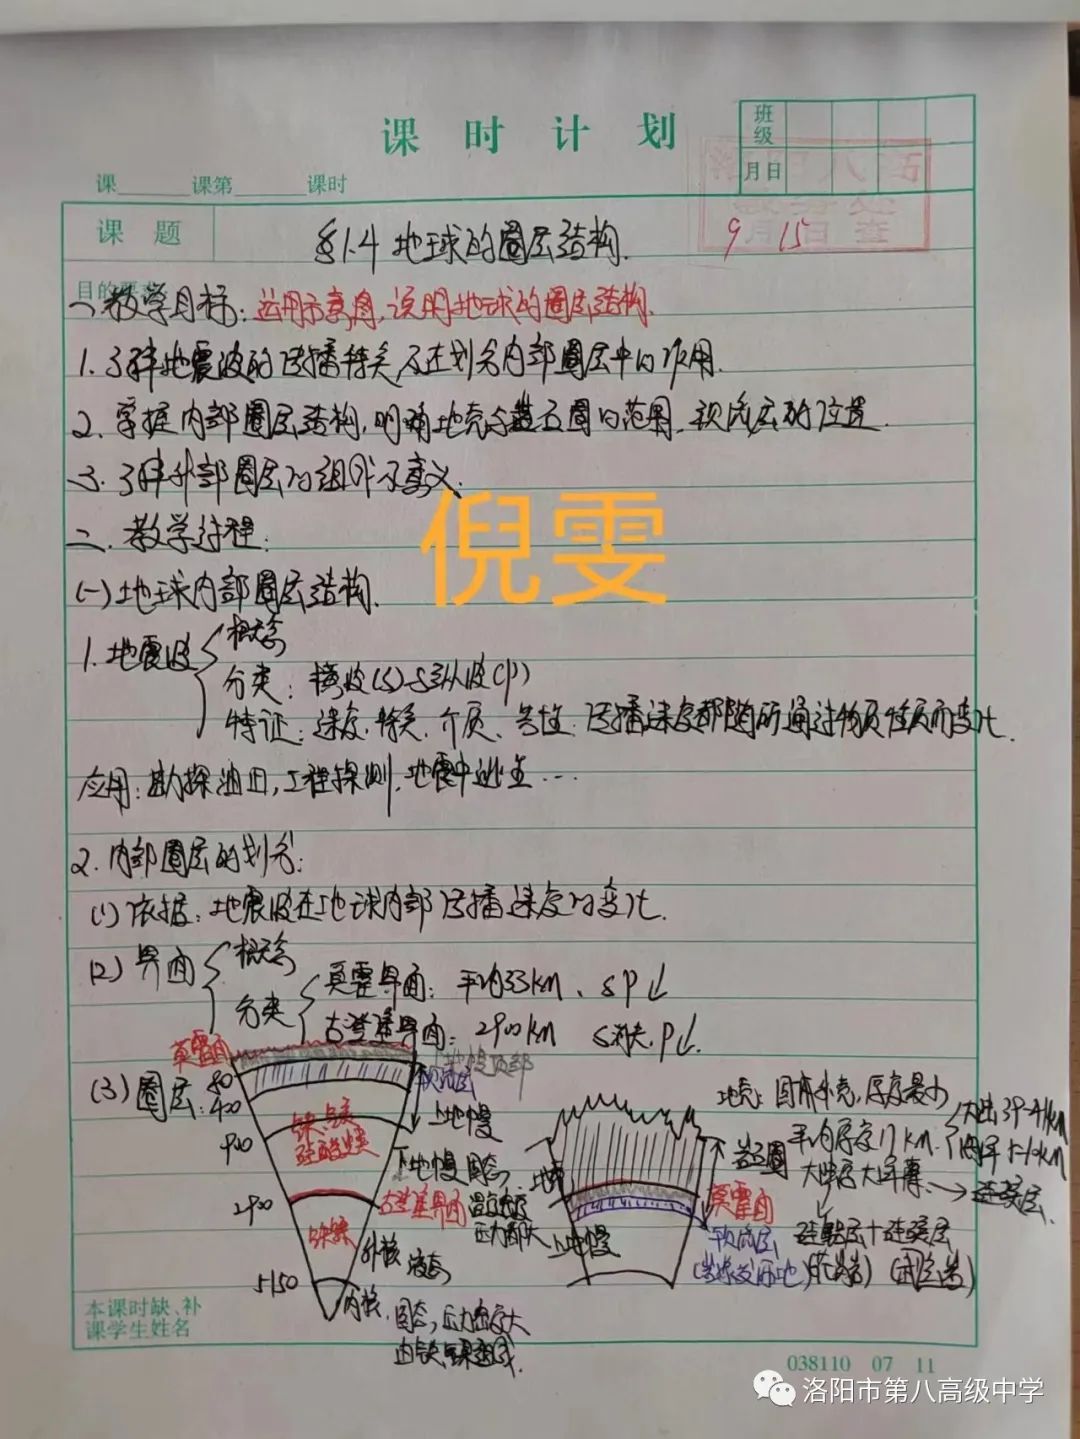 课时计划
班级
月日
课 课第 课时
课题
§1.4 地球的圈层结构.
9 15
月 日
目的要
一、教学目标：运用示意图,说明地球的圈层结构.
1.了解地震波的传播特点及在划分内部圈层中的作用.
2.掌握内部圈层结构,明确地壳与岩石圈的范围、软流层的位置.
3.了解外部圈层的组成及意义.
倪雯
二.教学过程:
(一)地球内部圈层结构.
1.地震波 概念
分类:横波(S)与纵波(P)
特征:速度.特点.介质.共性:传播速度都随所通过物质性质而变化.
应用:勘探油田,工程探测,地震中逃生…
2.内部圈层的划分:
(1)依据:地震波在地球内部传播速度的变化.
(2)界面 概念
分类 莫霍界面:平均33km、SP↓
古登堡界面:2900km S消失.P↓.
(3)圈层:
莫霍面
80
400
900
2900
5150
地幔顶部
软流层
上地幔
铁.镁
硅酸盐类
下地幔 固态.
古登堡界面
铁镍
外核 液态
内核.固态,压力密度大
地壳
上地幔
岩石圈
莫霍面
软流层
(岩浆发源地)
地壳:固体外壳,厚度最小
平均厚度17km. 大陆39-41km
海洋5-10km
大陆厚大洋薄. → 硅镁层.
硅铝层+硅镁层
本课时缺、补
课学生姓名
038110 07 11
洛阳市第八高级中学